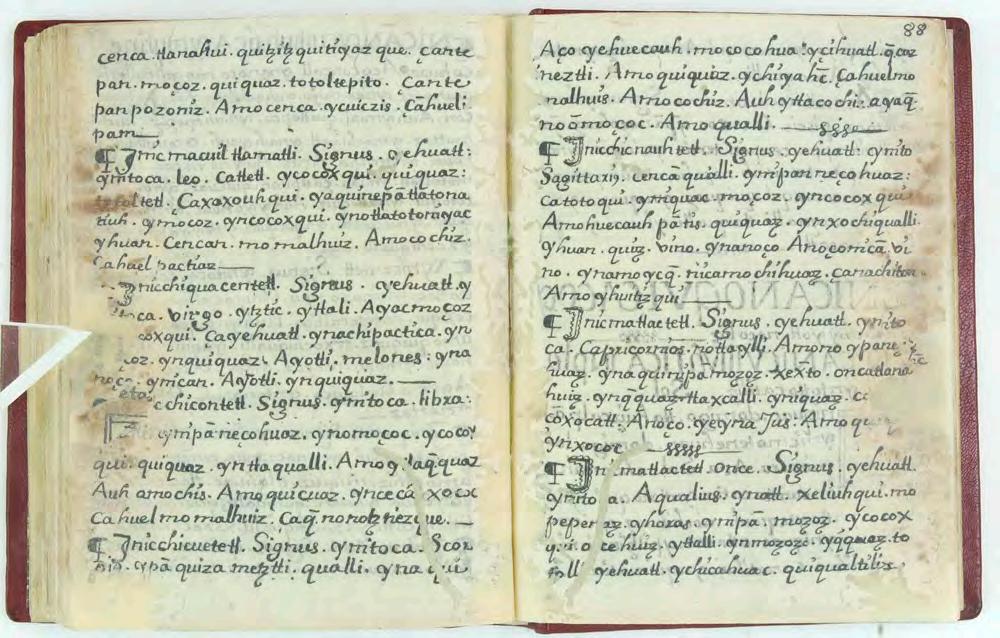 cenca. tlanahui. quitzitzquitiyaz que. çante
pan. moçoz. quiquaz. totoltepito. Çante
pan pozoniz. Amo cenca. ycuiczis. Cahueli
pam
¶ Jnic macuil tlamatli. Signus. yehuatl:
ymitoca. leo. Catletl. ycocoxqui. quiquaz:
totoltetl. Çaxaxouhqui. yaquinepātlatona
tiuh. ymoçoz. yncocoxqui. ynotlatotoniyac
yhuan. Cencan. momalhuiz. Amo cochiz.
Cahuel pactiaz
Jnicchiquacentetl. Signus. yehuatl. y
ca. virgo. ytztic. ytlali. Ayac moçoz
oxqui. Ca yehuatl. ynachi pactica. yn
oz. ynquiquaz. Ayotli. melones: yna
noço. ynican. Ayotli. ynquiquaz.
cchicontetl. Signus. ymitoca. libra:
ympā neçohuaz. ynomoçoc. ycoco
qui. quiquaz. yntlaqualli. Amo
Auh amochis. Amo quicuaz. ynceca xocx
Cahuel momalhuiz. Caq̄.
¶ Jnicchicuetetl. Signus. ymitoca. Scor
ypā quiza metztli. qualli. yna
88
Aço yehuecauh. mococohua. ycihuatl. q̄çaz
neztli. Amo quiquiz. ychiyahc. Çahuelmo
malhuis. Amo cochiz. Auh ytlacochi. ayaq̄
noōmoçoc. Amo qualli.
¶ Jnicchicnauhtetl. Signus. yehuatl: ymito
Sagittariꝰ. cencā qualli. ympan neçohuaz:
Catotoqui. yniquac. moçoz. yncocoxqui
Amo huecauh pātis. quiquaz. ynxochiqualli
yhuan. quiz. vino. ynanoço Amo vi
no. nicamochihuaz.
Amo yhuitzqui
¶ Jnic matlactetl. Signus. yehuatl. ymito
ca. Capricornios. notlaylli. Amono ypane
huaz. ynaquimpa mozoz. xexto. oncatlana
huiz. tlaxcalli. yniquaz.
coxocatl: Anoço. Jus: Amo
ynxococ
¶ Jn matlactetl. once. Signus. yehuatl.
ymito a. Aqualius. ynatl. xeliuhqui. mo
peper az. yhoras. ympā. mozoz. ycocox
ce huiz. ytlalli. ynmozoz. to
yehuatl. ychicahuac. quiqualtilis